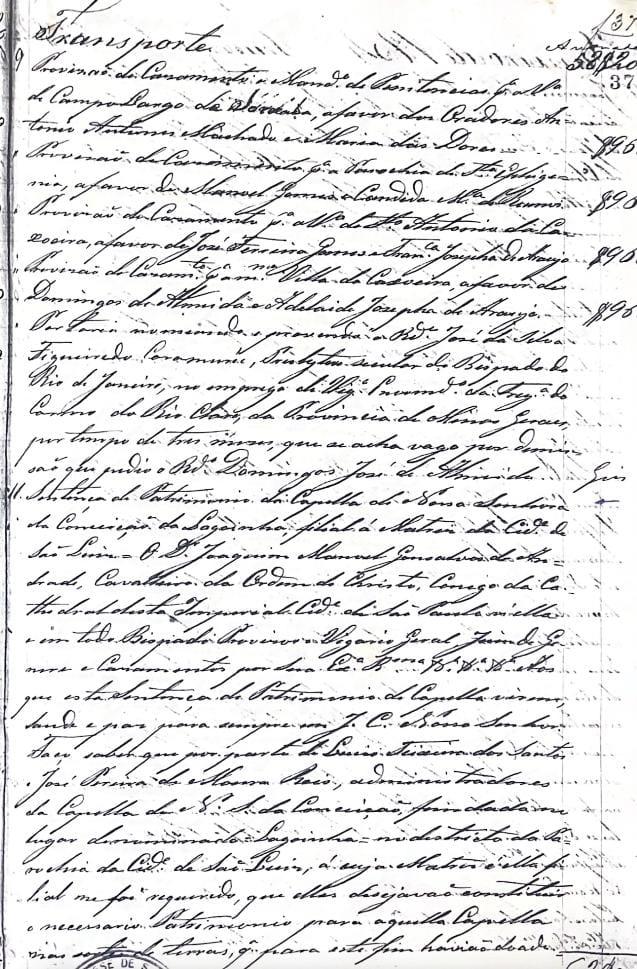 37
Transporte
52$820
37
9 Provisão de Casamento e Mand.º de Penitencias p.ª a M.ª
de Campo Largo de Sorocaba, a favor dos Oradores An-
tonio Antunes Machado e Maria das Dores
Provisão de Casamento p.ª a Parochia de S.ta Ephigenia
nia, a favor de Manoel Gomes e Candida M.ª de
Provisão de Casamento p.ª a M.ª de S.to Antonio da Ca-
xoeira, a favor de José Ferreira Gomes e Fran.ca Josepha de Araujo
Provisão de Casam.to p.ª a m.ma Villa da Caxoeira, a favor de
Domingos de Almeida e Adelaide Josepha de Araujo
Portaria nomeando e provendo o Rd.º José da Silva
Figueiredo Caramurú, Presbytero secular do Bispado do
Rio de Janeiro, no emprego de Vig.º Encomd.º da Freg.ª do
Carmo do Rio Claro, da Provincia de Minas Geraes,
por tempo de tres mezes, que se acha vago por demis-
são que pedio o Rd.º Domingos José de Almeida
11 Sentença de Patrimonio da Capella de Nossa Senhora
da Conceição da Lagoinha, filial á Matriz da Cid.e de
São Luiz = O D.r Joaquim Manoel Gonsalves de An-
drade, Cavalleiro da Ordem de Christo, Conego da Ca-
thedral desta Imperial Cid.e de São Paulo n'ella
e em todo Bispado Provisor e Vigario Geral, Juiz de Ge-
nere e Casamentos por Sua Ex.ª R.ma Aos
que esta Sentença de Patrimonio de Capella virem,
saude e paz para sempre em J. C. Nosso Senhor.
Faço saber que por parte de Lucio Teixeira dos Santos
e José Pereira de Moura Reis, administradores
da Capella de N. S. da Conceição, fundada no
lugar denominado = Lagoinha = no districto da Pa-
rochia da Cid.e de São Luiz, á cuja Matriz é ella fi-
lial me foi requerido, que elles desejavão constituir
o necessario Patrimonio para aquella Capella
nas de terras, q. para este fim havião doado